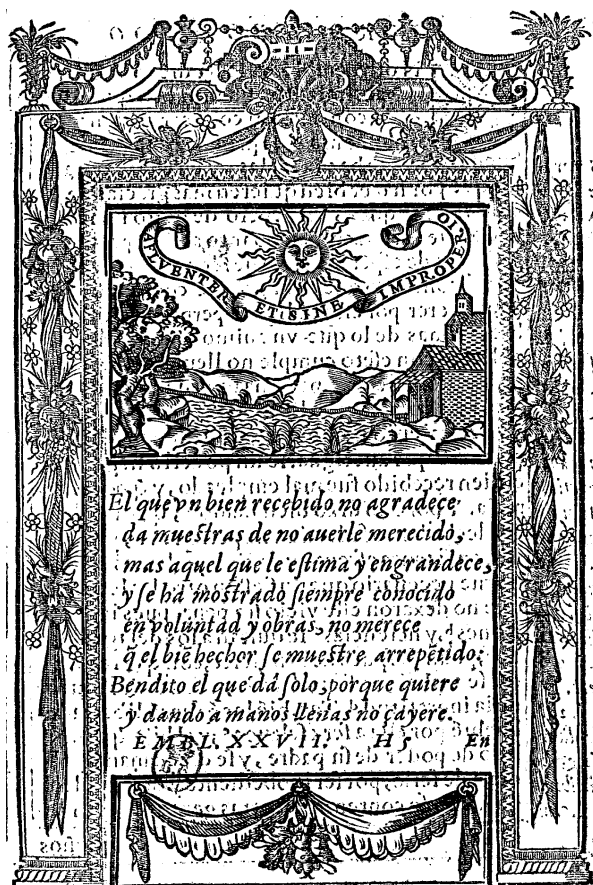 AFLVENTER ET SINE IMPROPERIO
El que vn bien recebido no agradece
da mueſtras de no auerle merecido,
mas aquel que le eſtima y engrandece,
y ſe há moſtrado ſiempre conocido
en voluntad y obras, no merece
q̃ el biẽ hechor ſe mueſtre arrepetido:
Bendito el que dá ſolo, porque quiere
y dando a manos llenas no çayere.
EMBL. XXVII. H 5 En